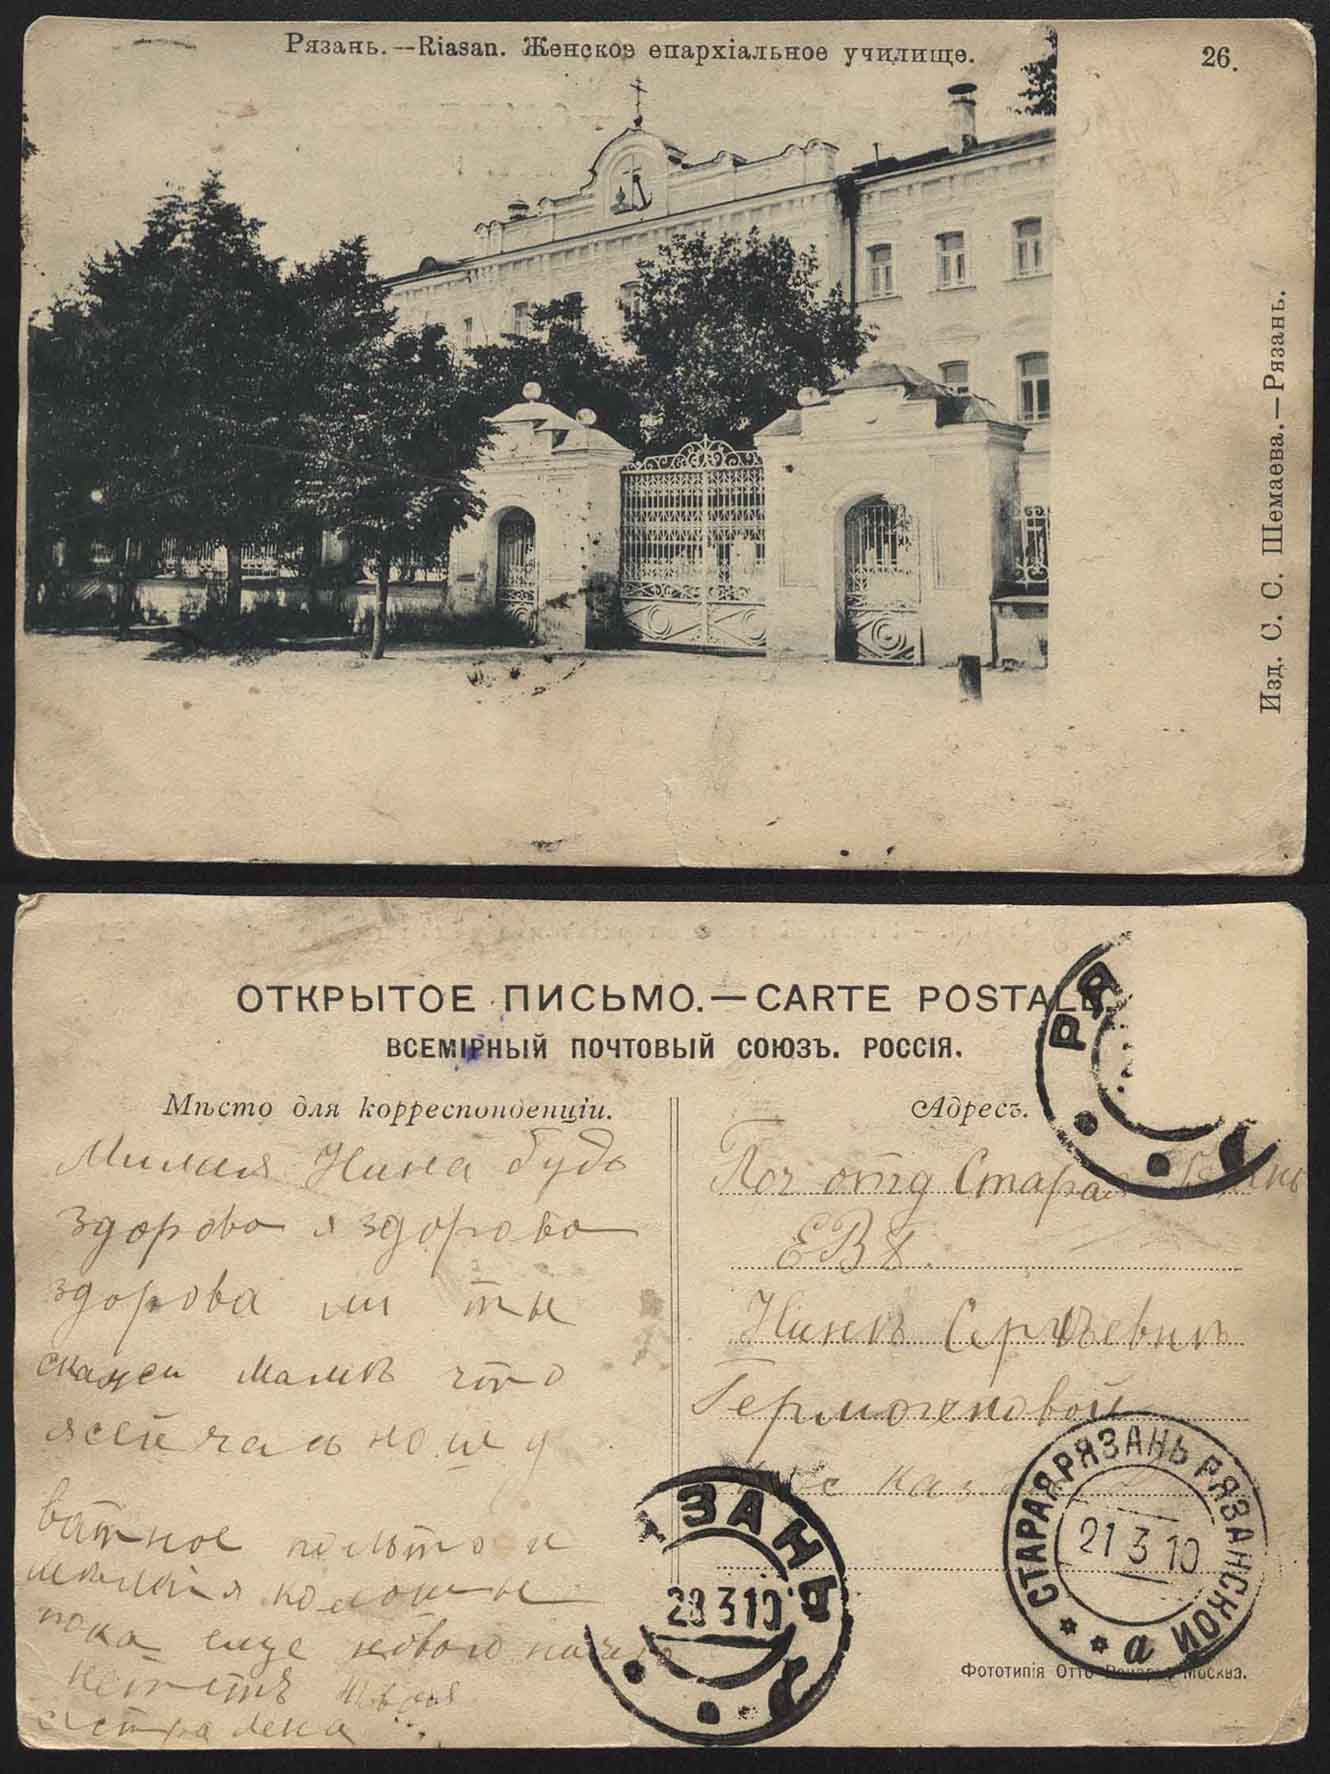 Рязань.—Riasan. Женское епархіальное училище.
26.
Изд. С. С. Шемаева.—Рязань.
ОТКРЫТОЕ ПИСЬМО.—CARTE POSTALE
ВСЕМІРНЫЙ ПОЧТОВЫЙ СОЮЗЪ. РОССІЯ.
Мѣсто для корреспонденціи.
Милая Нина будь
здорова я здорова
здорова ли ты
скажи мамѣ что
я
ватное польто и
калоши
пока еще новаго ничего
нетъ твоя
сестра Лена
Адресъ.
РЯ
Поч отд Старая Рязань
ЕВБ.
Нинѣ Сергѣевнѣ
Гермогеновой
СТАРАЯ РЯЗАНЬ РЯЗАНСКОЙ
21 3 10
а
ЗАНЬ
28 3 10
Фототипія Отто Ренаръ Москва.